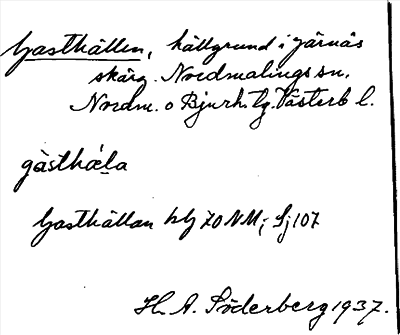 Gasthällen, hällgrund i Järnäs
skärg. Nordmalings sn.
Nordm. o Bjurh. tg. Västerb l.
gàsthǽla
Gasthällan hlj 70 NM; Sj 107
H. A. Söderberg 1937.